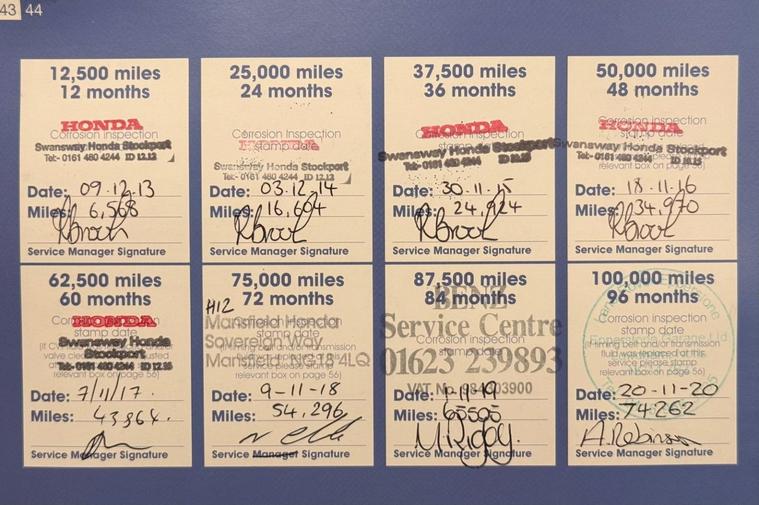 43 44
12,500 miles
12 months
HONDA
Corrosion Inspection
Swansway Honda Stockport
Tel:- 0161 480 4244 ID 12.12
Date: 09.12.13
Miles: 6,568
Service Manager Signature
25,000 miles
24 months
HONDA
Corrosion Inspection
stamp date
Swansway Honda Stockport
Tel:- 0161 480 4244 ID 12.12
Date: 03.12.14
Miles: 16,604
Service Manager Signature
37,500 miles
36 months
HONDA
Corrosion Inspection
Swansway Honda Stockport
Tel:- 0161 480 4244 ID 10.15
Date: 30.11.15
Miles: 24,924
Service Manager Signature
50,000 miles
48 months
HONDA
Corrosion Inspection
stamp date
Swansway Honda Stockport
Tel:- 0161 480 4244 ID 10.15
relevant box on page 56)
Date: 18.11.16
Miles: 34,970
Service Manager Signature
62,500 miles
60 months
HONDA
stamp date
Swansway Honda
Stockport
Tel:- 0161 480 4244
relevant box on page 56)
Date: 7/11/17.
Miles: 43,864.
Service Manager Signature
75,000 miles
72 months
H12
Corrosion Inspection
Mansfield Honda
stamp date
Sovereign Way
Mansfield NG18 4LQ
service please stamp
relevant box on page 56)
Date: 9-11-18
Miles: 54,296
Service Manager Signature
87,500 miles
84 months
BENZ
Service Centre
Corrosion Inspection
stamp date
01623 239893
VAT No
Date: 1.11.19
Miles: 65505
M. Rigby.
Service Manager Signature
100,000 miles
96 months
Corrosion Inspection
stamp date
Epperstone Garage Ltd
(If timing belt and/or transmission
fluid was replaced at this
service please stamp
relevant box on page 56)
Date: 20-11-20
Miles: 74262
A. Robinson
Service Manager Signature